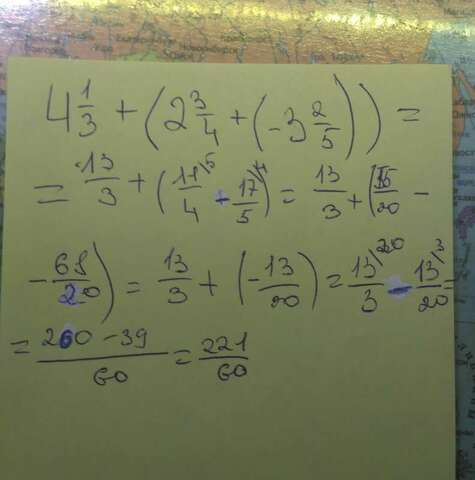 4 1/3 + (2 3/4 + (-3 2/5)) =
= 13/3 + (11/4 \5 - 17/5 \4) = 13/3 + (55/20 -
- 68/20) = 13/3 + (-13/20) = 13/3 \20 - 13/20 \3 =
= 260 - 39 / 60 = 221/60